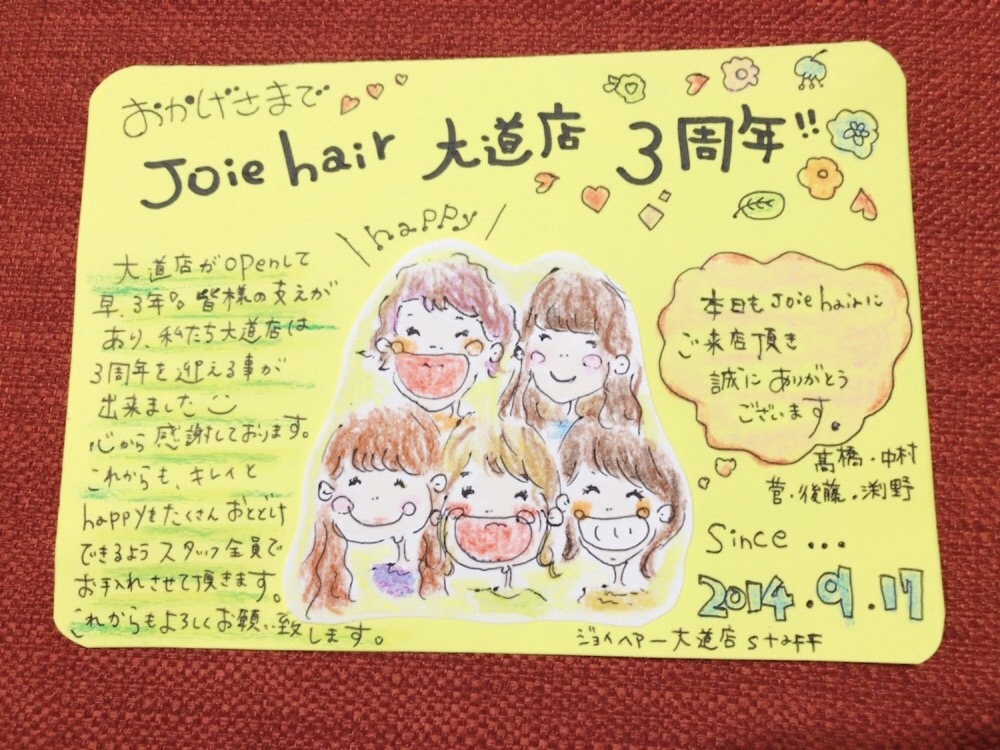 おかげさまで
Joie hair 大道店 3周年!!
happy
大道店がopenして
早、3年。皆様の支えが
あり、私たち大道店は
3周年を迎える事が
出来ました
心から感謝しております。
これからも、キレイと
happyをたくさんおとどけ
できるようスタッフ全員で
お手入れさせて頂きます。
これからもよろしくお願い致します。
本日もJoie hairに
ご来店頂き
誠にありがとう
ございます。
髙橋・中村
菅・後藤・渕野
Since ...
2014.9.17
ジョイヘアー大道店staff